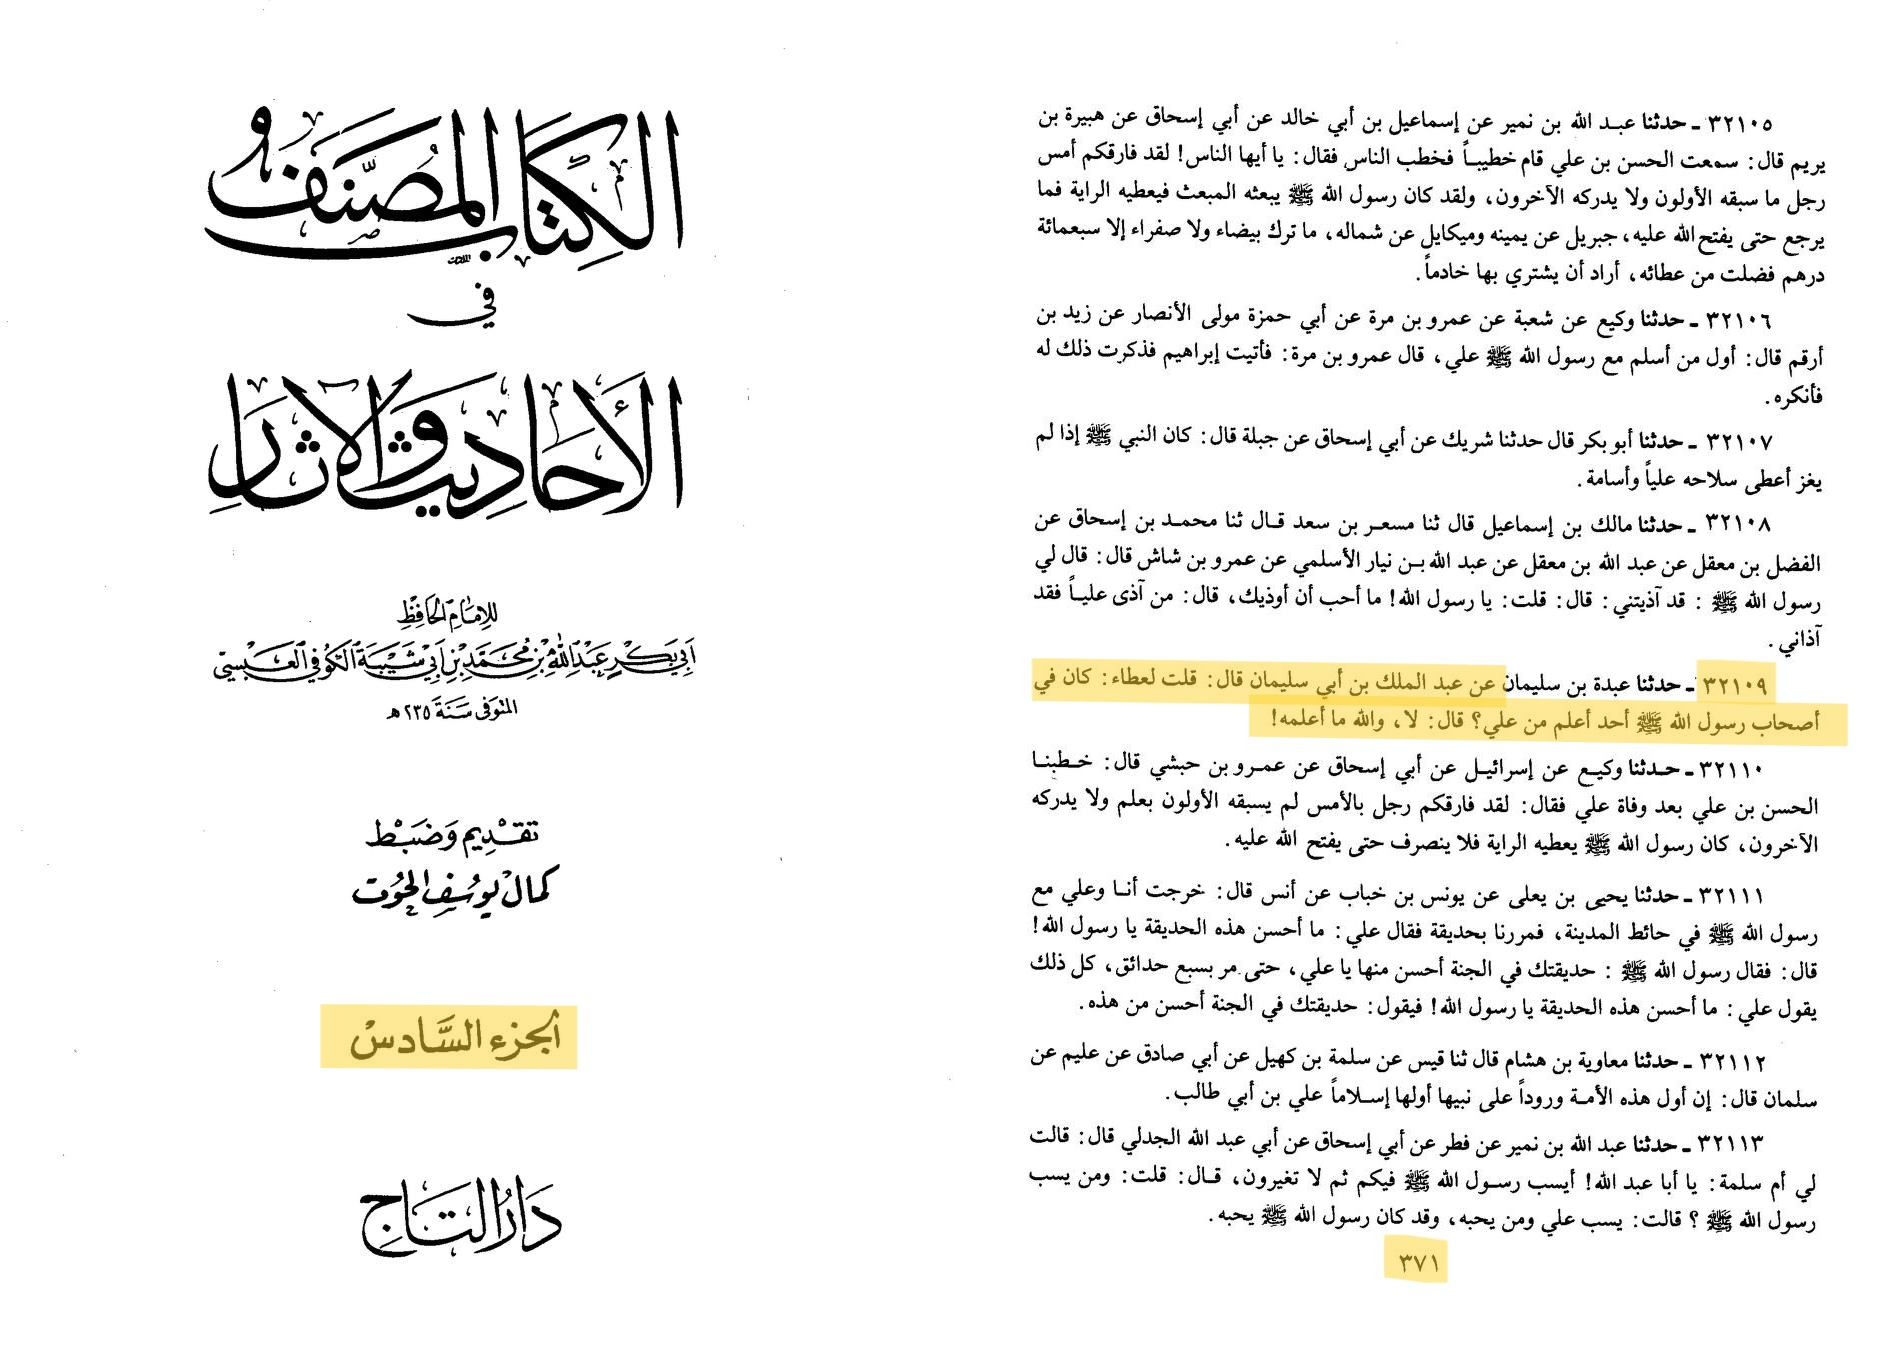 الكتاب المصنف
في
الأحاديث والآثار
للإمام الحافظ
أبي بكر عبد الله بن محمد بن أبي شيبة الكوفي العبسي
المتوفى سنة ٢٣٥ هـ
تقديم وضبط
كمال يوسف الحوت
الجزء السادس
دار التاج
٣٢١٠٥ ـ حدثنا عبـد الله بن نمير عن إسماعيل بن أبي خالد عن أبي إسحاق عن هبيرة بن
يريم قال: سمعت الحسن بن علي قام خطيبـاً فخطب الناس فقال: يا أيها الناس! لقد فارقكم أمس
رجل ما سبقه الأولون ولا يدركه الآخرون، ولقد كان رسول الله ﷺ يبعثه المبعث فيعطيه الراية فما
يرجع حتى يفتح الله عليه، جبريل عن يمينه وميكايل عن شماله، ما ترك بيضاء ولا صفراء إلا سبعمائة
درهم فضلت من عطائه، أراد أن يشتري بها خادماً.
٣٢١٠٦ ـ حدثنا وكيع عن شعبة عن عمرو بن مرة عن أبي حمزة مولى الأنصار عن زيد بن
أرقم قال: أول من أسلم مع رسول الله ﷺ علي، قال عمرو بن مرة: فأتيت إبراهيم فذكرت ذلك له
فأنكره.
٣٢١٠٧ ـ حدثنا أبو بكر قال حدثنا شريك عن أبي إسحاق عن جبلة قال: كان النبي ﷺ إذا لم
يغز أعطى سلاحه علياً وأسامة.
٣٢١٠٨ ـ حدثنا مالك بن إسماعيل قال ثنا مسعـر بن سعد قـال ثنا محمـد بن إسحاق عن
الفضل بن معقل عن عبد الله بن معقل عن عبد الله بـن نيار الأسلمي عن عمرو بن شاش قال: قال لي
رسول الله ﷺ : قد آذيتني: قال: قلت: يا رسول الله! ما أحب أن أوذيك، قال: من آذى عليـاً فقد
آذاني.
٣٢١٠٩ ـ حدثنا عبدة بن سليمان عن عبد الملك بن أبي سليمان قال: قلت لعطاء: كان في
أصحاب رسول الله ﷺ أحد أعلم من علي؟ قال: لا، والله ما أعلمه!
٣٢١١٠ ـ حـدثنا وكيـع عن إسرائيـل عن أبي إسحاق عن عمـرو بن حبشي قال: خـطبنـا
الحسن بن علي بعد وفاة علي فقال: لقد فارقكم رجل بالأمس لم يسبقه الأولون بعلم ولا يدركه
الآخرون، كان رسول الله ﷺ يعطيه الراية فلا ينصرف حتى يفتح الله عليه.
٣٢١١١ ـ حدثنا يحيى بن يعلى عن يونس بن خباب عن أنس قال: خرجت أنـا وعلي مع
رسول الله ﷺ في حائط المدينة، فمررنا بحديقة فقال علي: ما أحسن هذه الحديقة يا رسول الله!
قال: فقال رسول الله ﷺ : حديقتك في الجنة أحسن منها يا علي، حتى مر بسبع حدائق، كل ذلك
يقول علي: ما أحسن هذه الحديقة يا رسول الله! فيقول: حديقتك في الجنة أحسن من هذه.
٣٢١١٢ ـ حدثنا معاوية بن هشام قال ثنا قيس عن سلمة بن كهيل عن أبي صادق عن عليم عن
سلمان قال: إن أول هذه الأمـة وروداً على نبيها أولها إسـلاماً علي بن أبي طالب.
٣٢١١٣ ـ حدثنا عبد الله بن نمير عن فطر عن أبي إسحاق عن أبي عبد الله الجدلي قال: قالت
لي أم سلمة: يا أبا عبد الله! أيسب رسـول الله ﷺ فيكم ثم لا تغيرون، قـال: قلت: ومن يسب
رسول الله ﷺ ؟ قالت: يسب علي ومن يحبه، وقد كان رسول الله ﷺ يحبه.
٣٧١